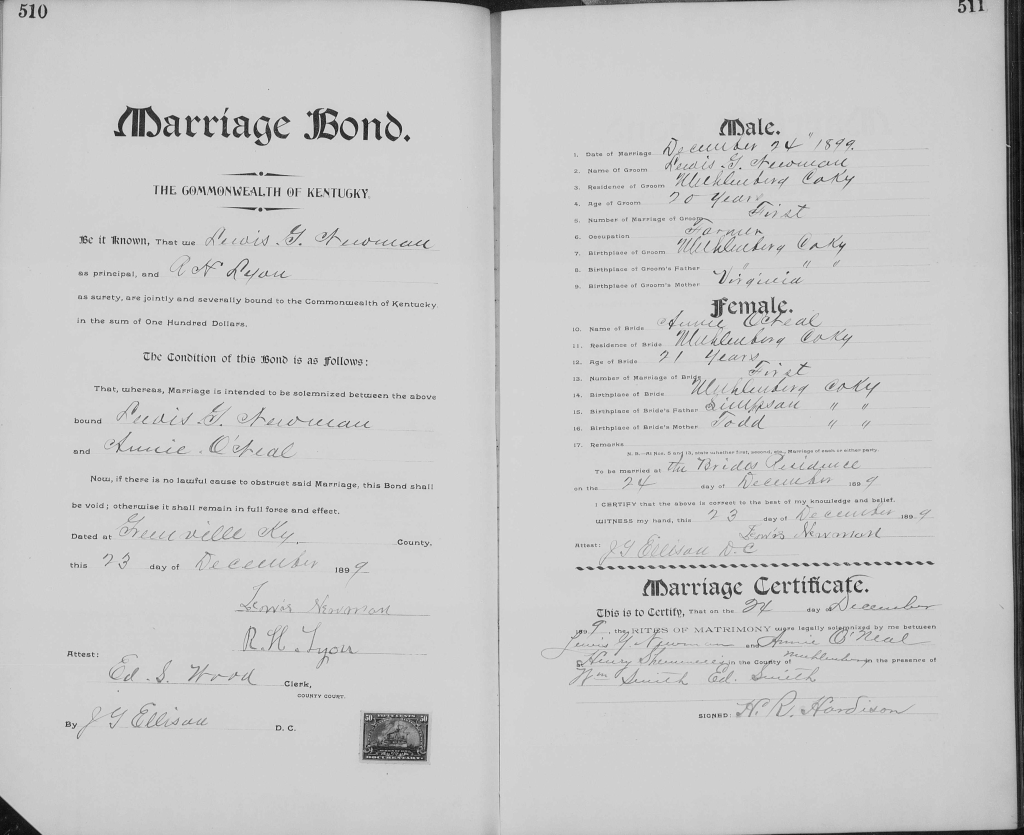 510
Marriage Bond.
THE COMMONWEALTH OF KENTUCKY.
Be it Known, That we Lewis G. Newman
as principal, and R H Lyon
as surety, are jointly and severally bound to the Commonwealth of Kentucky
in the sum of One Hundred Dollars.
The Condition of this Bond is as Follows:
That, whereas, Marriage is intended to be solemnized between the above
bound Lewis G. Newman
and Annie O'Neal
Now, if there is no lawful cause to obstruct said Marriage, this Bond shall
be void; otherwise it shall remain in full force and effect.
Dated at Greenville Ky. County.
this 23 day of December 1899
Lewis Newman
R. H. Lyon
Attest:
Ed. S. Wood Clerk,
COUNTY COURT.
By J G Ellison D. C.
50 50
DOCUMENTARY
511
Male.
1. Date of Marriage December 24" 1899.
2. Name Of Groom Lewis G. Newman
3. Residence of Groom Muhlenberg Co Ky
4. Age of Groom 20 years
5. Number of Marriage of Groom First
6. Occupation Farmer
7. Birthplace of Groom Muhlenberg Co Ky
8. Birthplace of Groom's Father " " "
9. Birthplace of Groom's Mother Virginia
Female.
10. Name of Bride Annie O'Neal
11. Residence of Bride Muhlenberg Co Ky
12. Age of Bride 21 years
13. Number of Marriage of Bride First
14. Birthplace of Bride Muhlenberg Co Ky
15. Birthplace of Bride's Father Simpson " "
16. Birthplace of Bride's Mother Todd " "
17. Remarks
N. B.—At Nos. 5 and 13, state whether first, second, etc., Marriage of each or either party.
To be married at the Brides Residence
on the 24 day of December 1899
I CERTIFY that the above is correct to the best of my knowledge and belief.
WITNESS my hand, this 23 day of December 1899
Lewis Newman
Attest: J G Ellison D. C
Marriage Certificate.
This is to Certify, That on the 24 day of December
1899, the RITES OF MATRIMONY were legally solemnized by me between
Lewis G Newman and Annie O'Neal
at Henry in the County of Muhlenberg in the presence of
Wm Smith Ed. Smith
SIGNED: H. R. Hardison